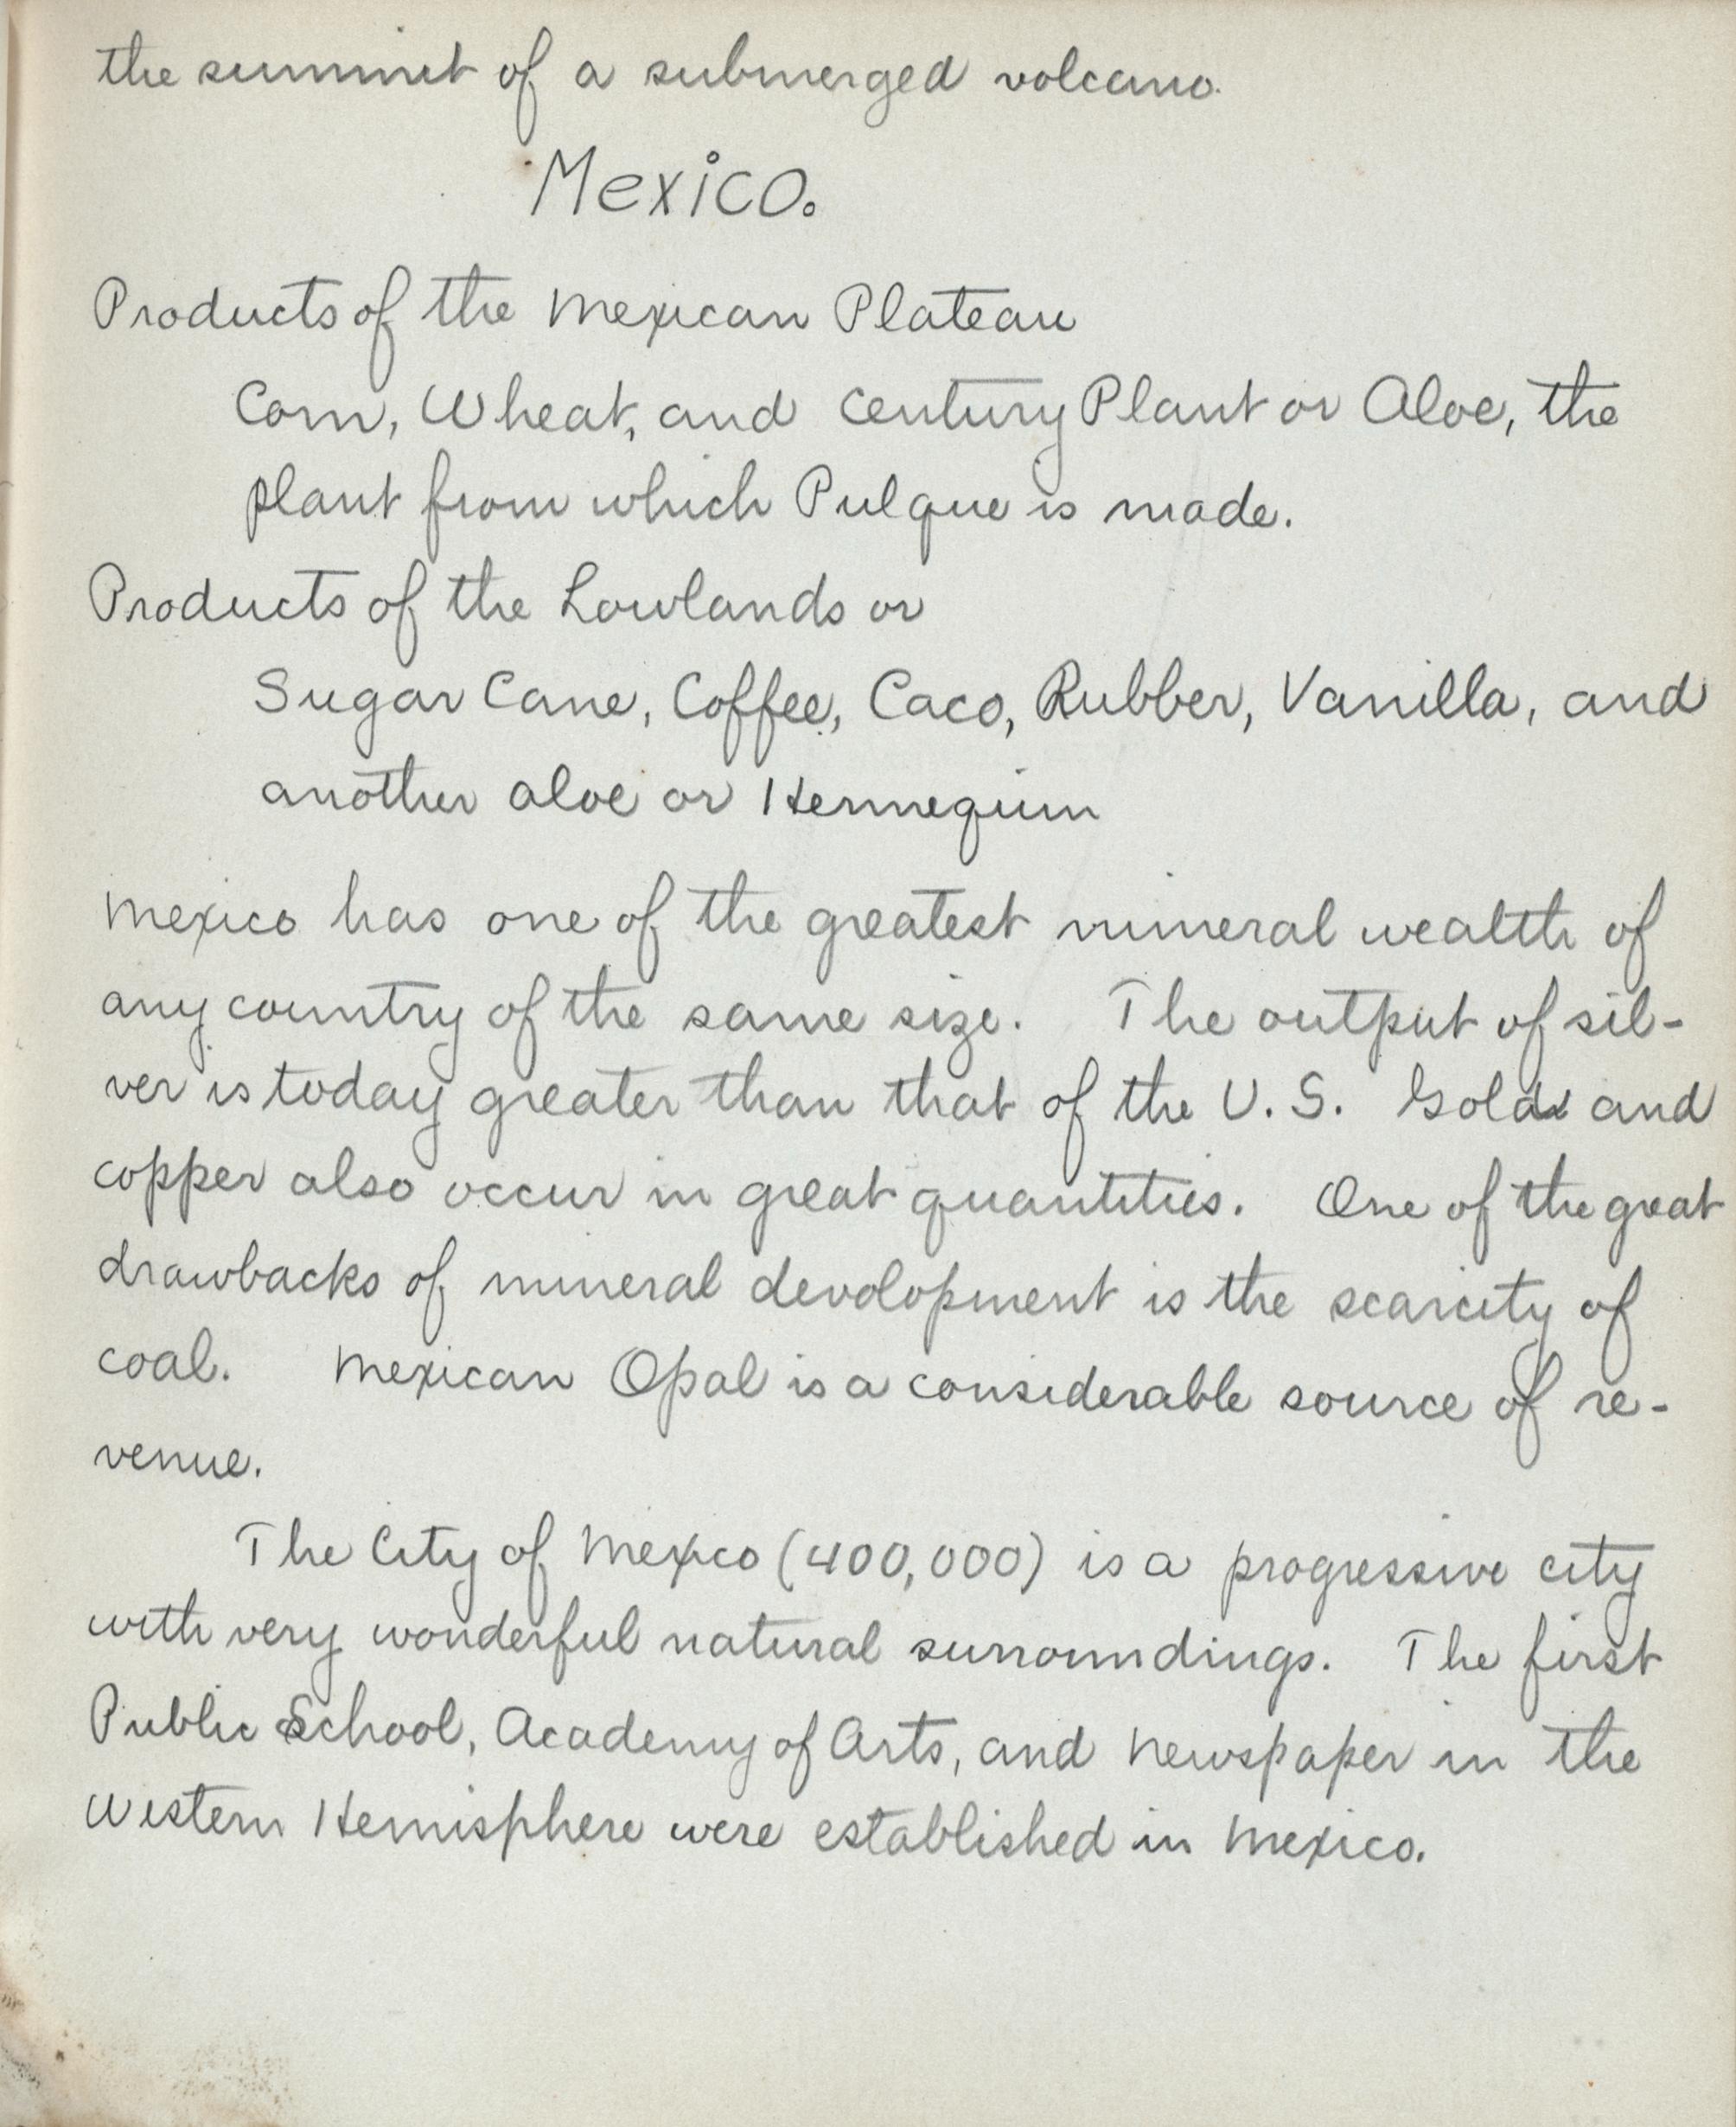 the summit of a submerged volcano.
Mexico.
Products of the Mexican Plateau
Corn, Wheat, and Century Plant or Aloe, the
plant from which Pulque is made.
Products of the Lowlands or
Sugar Cane, Coffee, Caco, Rubber, Vanilla, and
another aloe or Hennequin
Mexico has one of the greatest mineral wealth of
any country of the same size. The output of sil-
ver is today greater than that of the U. S. Gold and
copper also occur in great quantities. One of the great
drawbacks of mineral devolopment is the scarcity of
coal. Mexican Opal is a considerable source of re-
venue.
The City of Mexico (400,000) is a progressive city
with very wonderful natural surroundings. The first
Public School, Academy of Arts, and Newspaper in the
Western Hemisphere were established in Mexico.